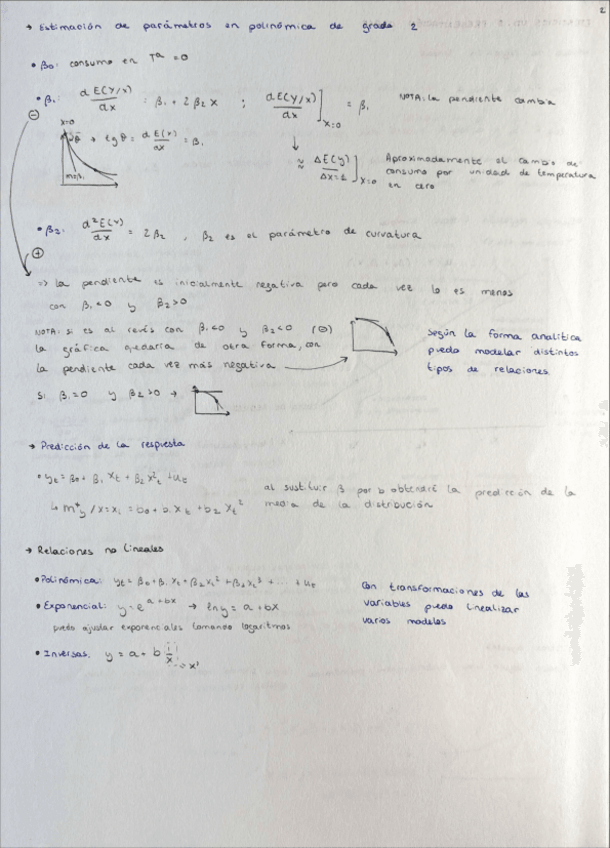 2
→ Estimación de parámetros en polinómica de grado 2
• β₀: consumo en Tª = 0
• β₁: dE(Y/x)/dx = β₁ + 2β₂x ; dE(Y/x)/dx]x=0 = β₁ NOTA: la pendiente cambia
x=0
θ → tg θ = dE(Y)/dx = β₁
m=β₁
≈ ΔE(y)/Δx=1]x=0 Aproximadamente el cambio de
consumo por unidad de temperatura
en cero
• β₂: d²E(Y)/dx = 2β₂ , β₂ es el parámetro de curvatura
=> la pendiente es inicialmente negativa pero cada vez lo es menos
con β₁<0 y β₂>0
NOTA: si es al revés con β₁<0 y β₂<0 (⊖)
la gráfica quedaría de otra forma, con
la pendiente cada vez más negativa
Según la forma analítica
puedo modelar distintos
tipos de relaciones
Si β₁=0 y β₂>0 →
→ Predicción de la respuesta
• yt = β₀ + β₁xt + β₂xt² + ut
↳ m*y/x=xt = b₀ + b₁xt + b₂xt²
al sustituir β por b obtendré la predicción de la
media de la distribución
→ Relaciones no lineales
• Polinómica: yt = β₀ + β₁xt + β₂xt² + β₃xt³ + ... + ut
• Exponencial: y = e^(a+bx) → ln y = a + bx
puedo ajustar exponenciales tomando logaritmos
Con transformaciones de las
variables puedo linealizar
varios modelos
• Inversas: y = a + b 1/x
→ x'